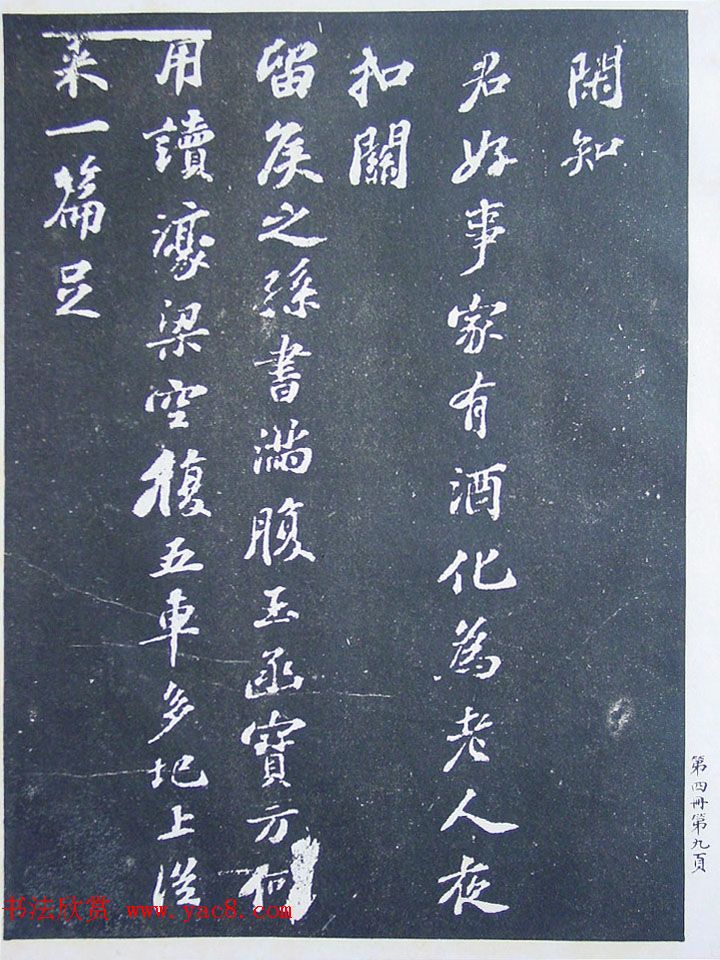 閑知
君好事家有酒化為老人夜
扣關
留矦之孫書滿腹玉函寶方何
用讀濠梁空復五車多圯上從
來一篇足
第四冊第九頁
书法欣赏 www.yac8.com